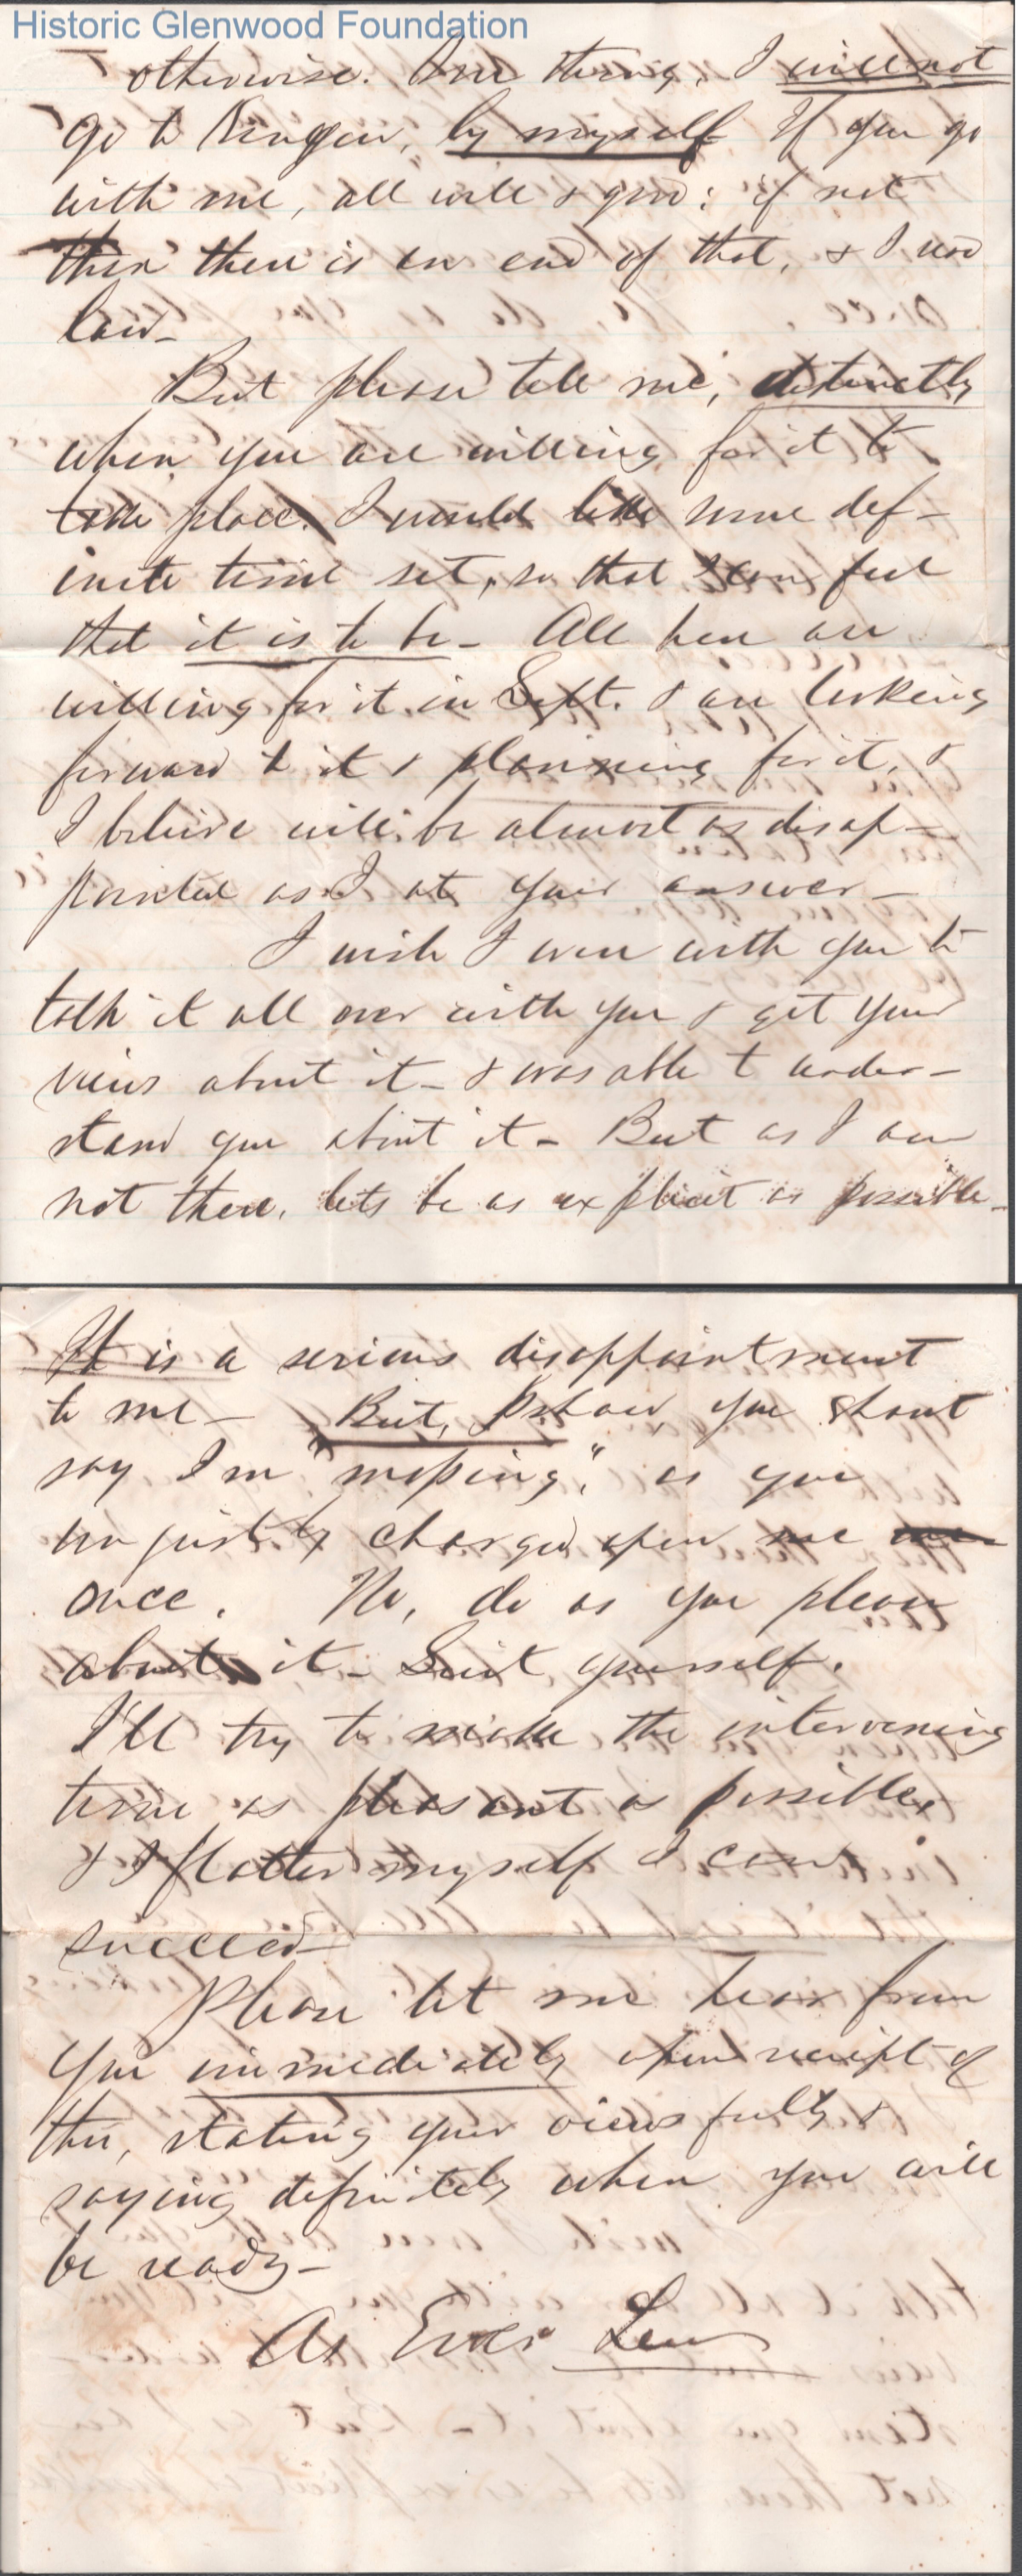 Historic Glenwood Foundation
otherwise. One thing, I will not
go to by myself If you go
with me, all well & good: if not
then there is an end of that, & I
law -
But please tell me, distinctly
when you are willing for it to
take place. I would like some def-
inite time set, so that I can feel
that it is to be - All here are
willing for it in Sept. & are looking
forward to it & planning for it, &
I believe will be almost as disap-
pointed as I at your answer -
I wish I were with you to
talk it all over with you & get your
views about it - & was able to under-
stand you about it - But as I am
not there, lets be as explicit as possible -
It is a serious disappointment
to me - But, Pshaw, you shant
say I'm "moping", as you
unjustly charged upon me
once. No, do as you please
about it - Suit yourself.
I'll try to make the intervening
time as pleasant as possible,
& I flatter myself I can
succeed -
Please let me hear from
you immediately upon receipt of
this, stating your views fully &
saying definitely when you will
be ready -
As Ever Lew